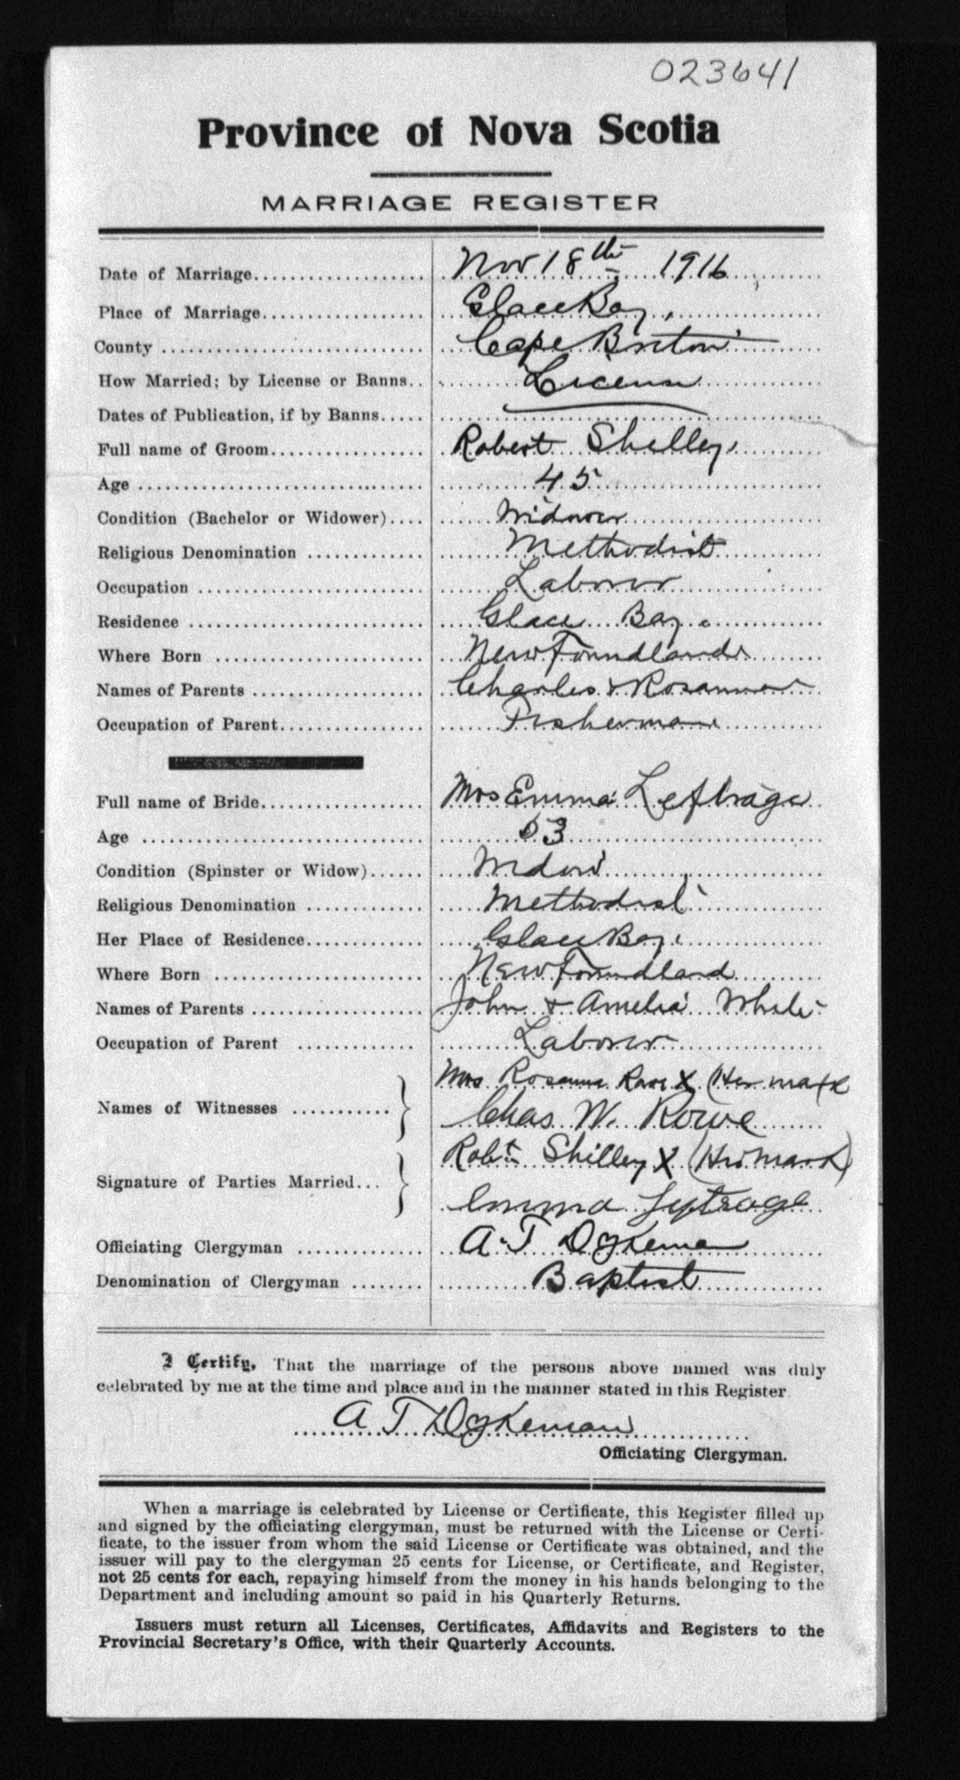 023641
Province of Nova Scotia
MARRIAGE REGISTER
Date of Marriage.................... Nov 18th 1916
Place of Marriage................... Glace Bay.
County .............................. Cape Breton
How Married; by License or Banns.. License
Dates of Publication, if by Banns.....
Full name of Groom.................. Robert Shelley.
Age ................................. 45
Condition (Bachelor or Widower).... Widower
Religious Denomination ............. Methodist
Occupation .......................... Laborer
Residence ........................... Glace Bay.
Where Born ......................... Newfoundland
Names of Parents .................... Charles & Rosanna
Occupation of Parent................ Fisherman
Full name of Bride................... Mrs Emma Leftrage
Age ................................. 53
Condition (Spinster or Widow)...... Widow
Religious Denomination ............. Methodist
Her Place of Residence.............. Glace Bay.
Where Born ......................... Newfoundland
Names of Parents .................... John & Amelia White
Occupation of Parent ............... Laborer
Mrs Rosanna Rowe X (Her mark
Names of Witnesses ........... } Chas W. Rowe
Robt Shilley X (His mark)
Signature of Parties Married... } Emma
Officiating Clergyman ............... A. T Dykeman
Denomination of Clergyman ........ Baptist
I Certify, That the marriage of the persons above named was duly
celebrated by me at the time and place and in the manner stated in this Register
A T Dykeman
Officiating Clergyman.
When a marriage is celebrated by License or Certificate, this Register filled up
and signed by the officiating clergyman, must be returned with the License or Certi-
ficate, to the issuer from whom the said License or Certificate was obtained, and the
issuer will pay to the clergyman 25 cents for License, or Certificate, and Register,
not 25 cents for each, repaying himself from the money in his hands belonging to the
Department and including amount so paid in his Quarterly Returns.
Issuers must return all Licenses, Certificates, Affidavits and Registers to the
Provincial Secretary's Office, with their Quarterly Accounts.